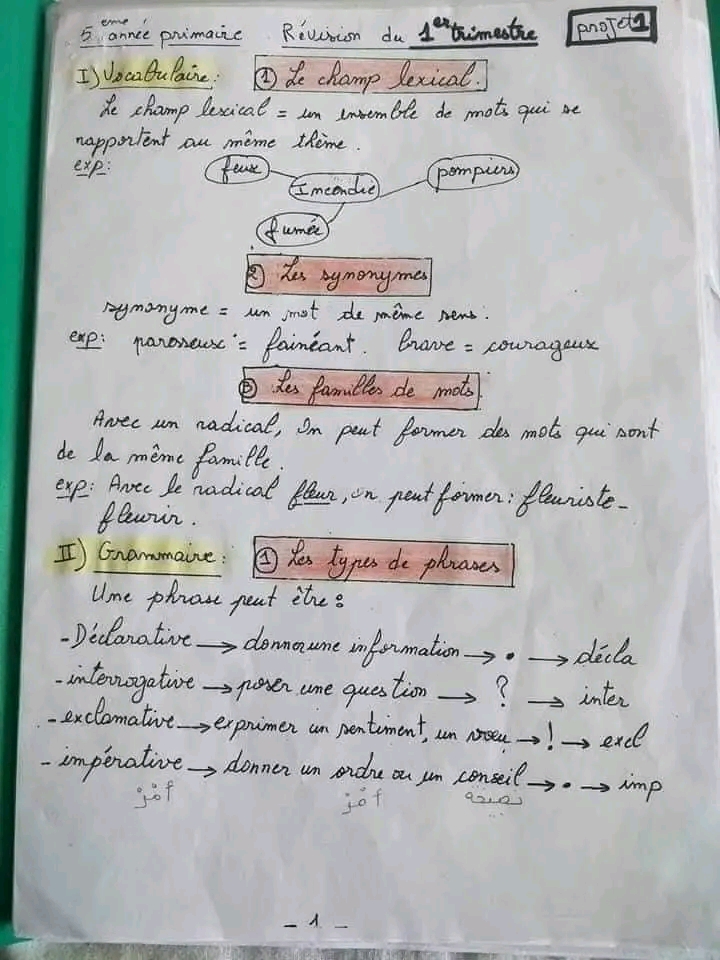 5ème année primaire Révision du 1er trimestre projet 1
I) Vocabulaire : ① Le champ lexical.
Le champ lexical = un ensemble de mots qui se
rapportent au même thème.
exp:
feux Incendie pompiers
fumée
② Les synonymes
synonyme = un mot de même sens.
exp: parosseux = fainéant. brave = courageux
③ Les familles de mots.
Avec un radical, On peut former des mots qui sont
de la même famille.
exp: Avec le radical fleur, on peut former : fleuriste-
fleurir.
II) Grammaire : ① Les types de phrases
Une phrase peut être :
- Déclarative → donner une information → . → décla
- interrogative → poser une question → ? → inter
- exclamative → exprimer un sentiment, un vœu → ! → excl
- impérative → donner un ordre ou un conseil → . → imp
أمْرٌ أمْرٌ نصيحة
- 1 -